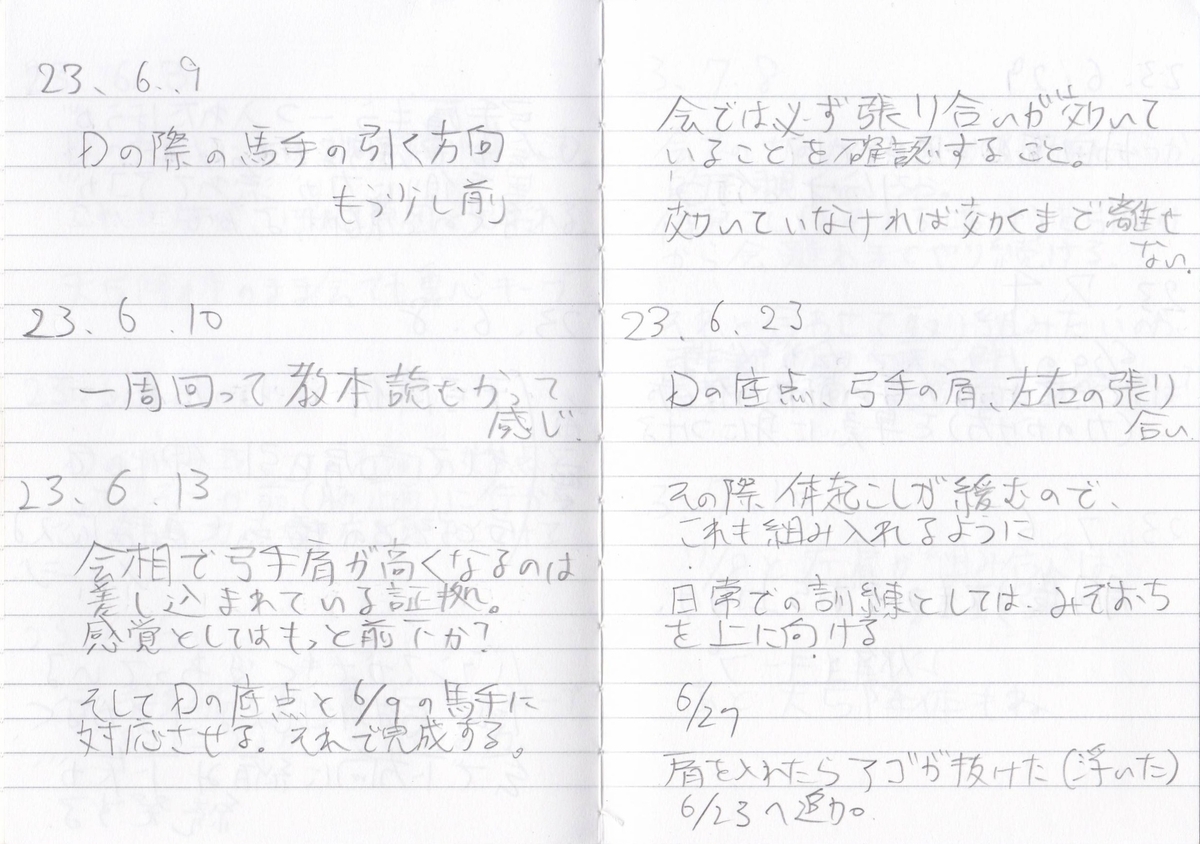 23、6、9
Dの際の馬手の引く方向
もう少し前
23、6、10
一周回って教本読むかって
感じ.
23、6 13
会相で弓手肩が高くなるのは
差し込まれている証拠。
感覚としてはもっと前下か?
そしてDの底点と6/9の馬手に
対応させる。それで完成する。
会では必ず張り合いが効いて
いることを確認すること。
効いていなければ効くまで離せ
ない.
23、6、23
Dの底点、弓手の肩、左右の張り
合い.
その際体起こしが緩むので、
これも組み入れるように
日常での訓練としては、みぞおち
を上に向ける
6/29
肩を入れたらアゴが抜けた(浮いた)
6/23へ追加。